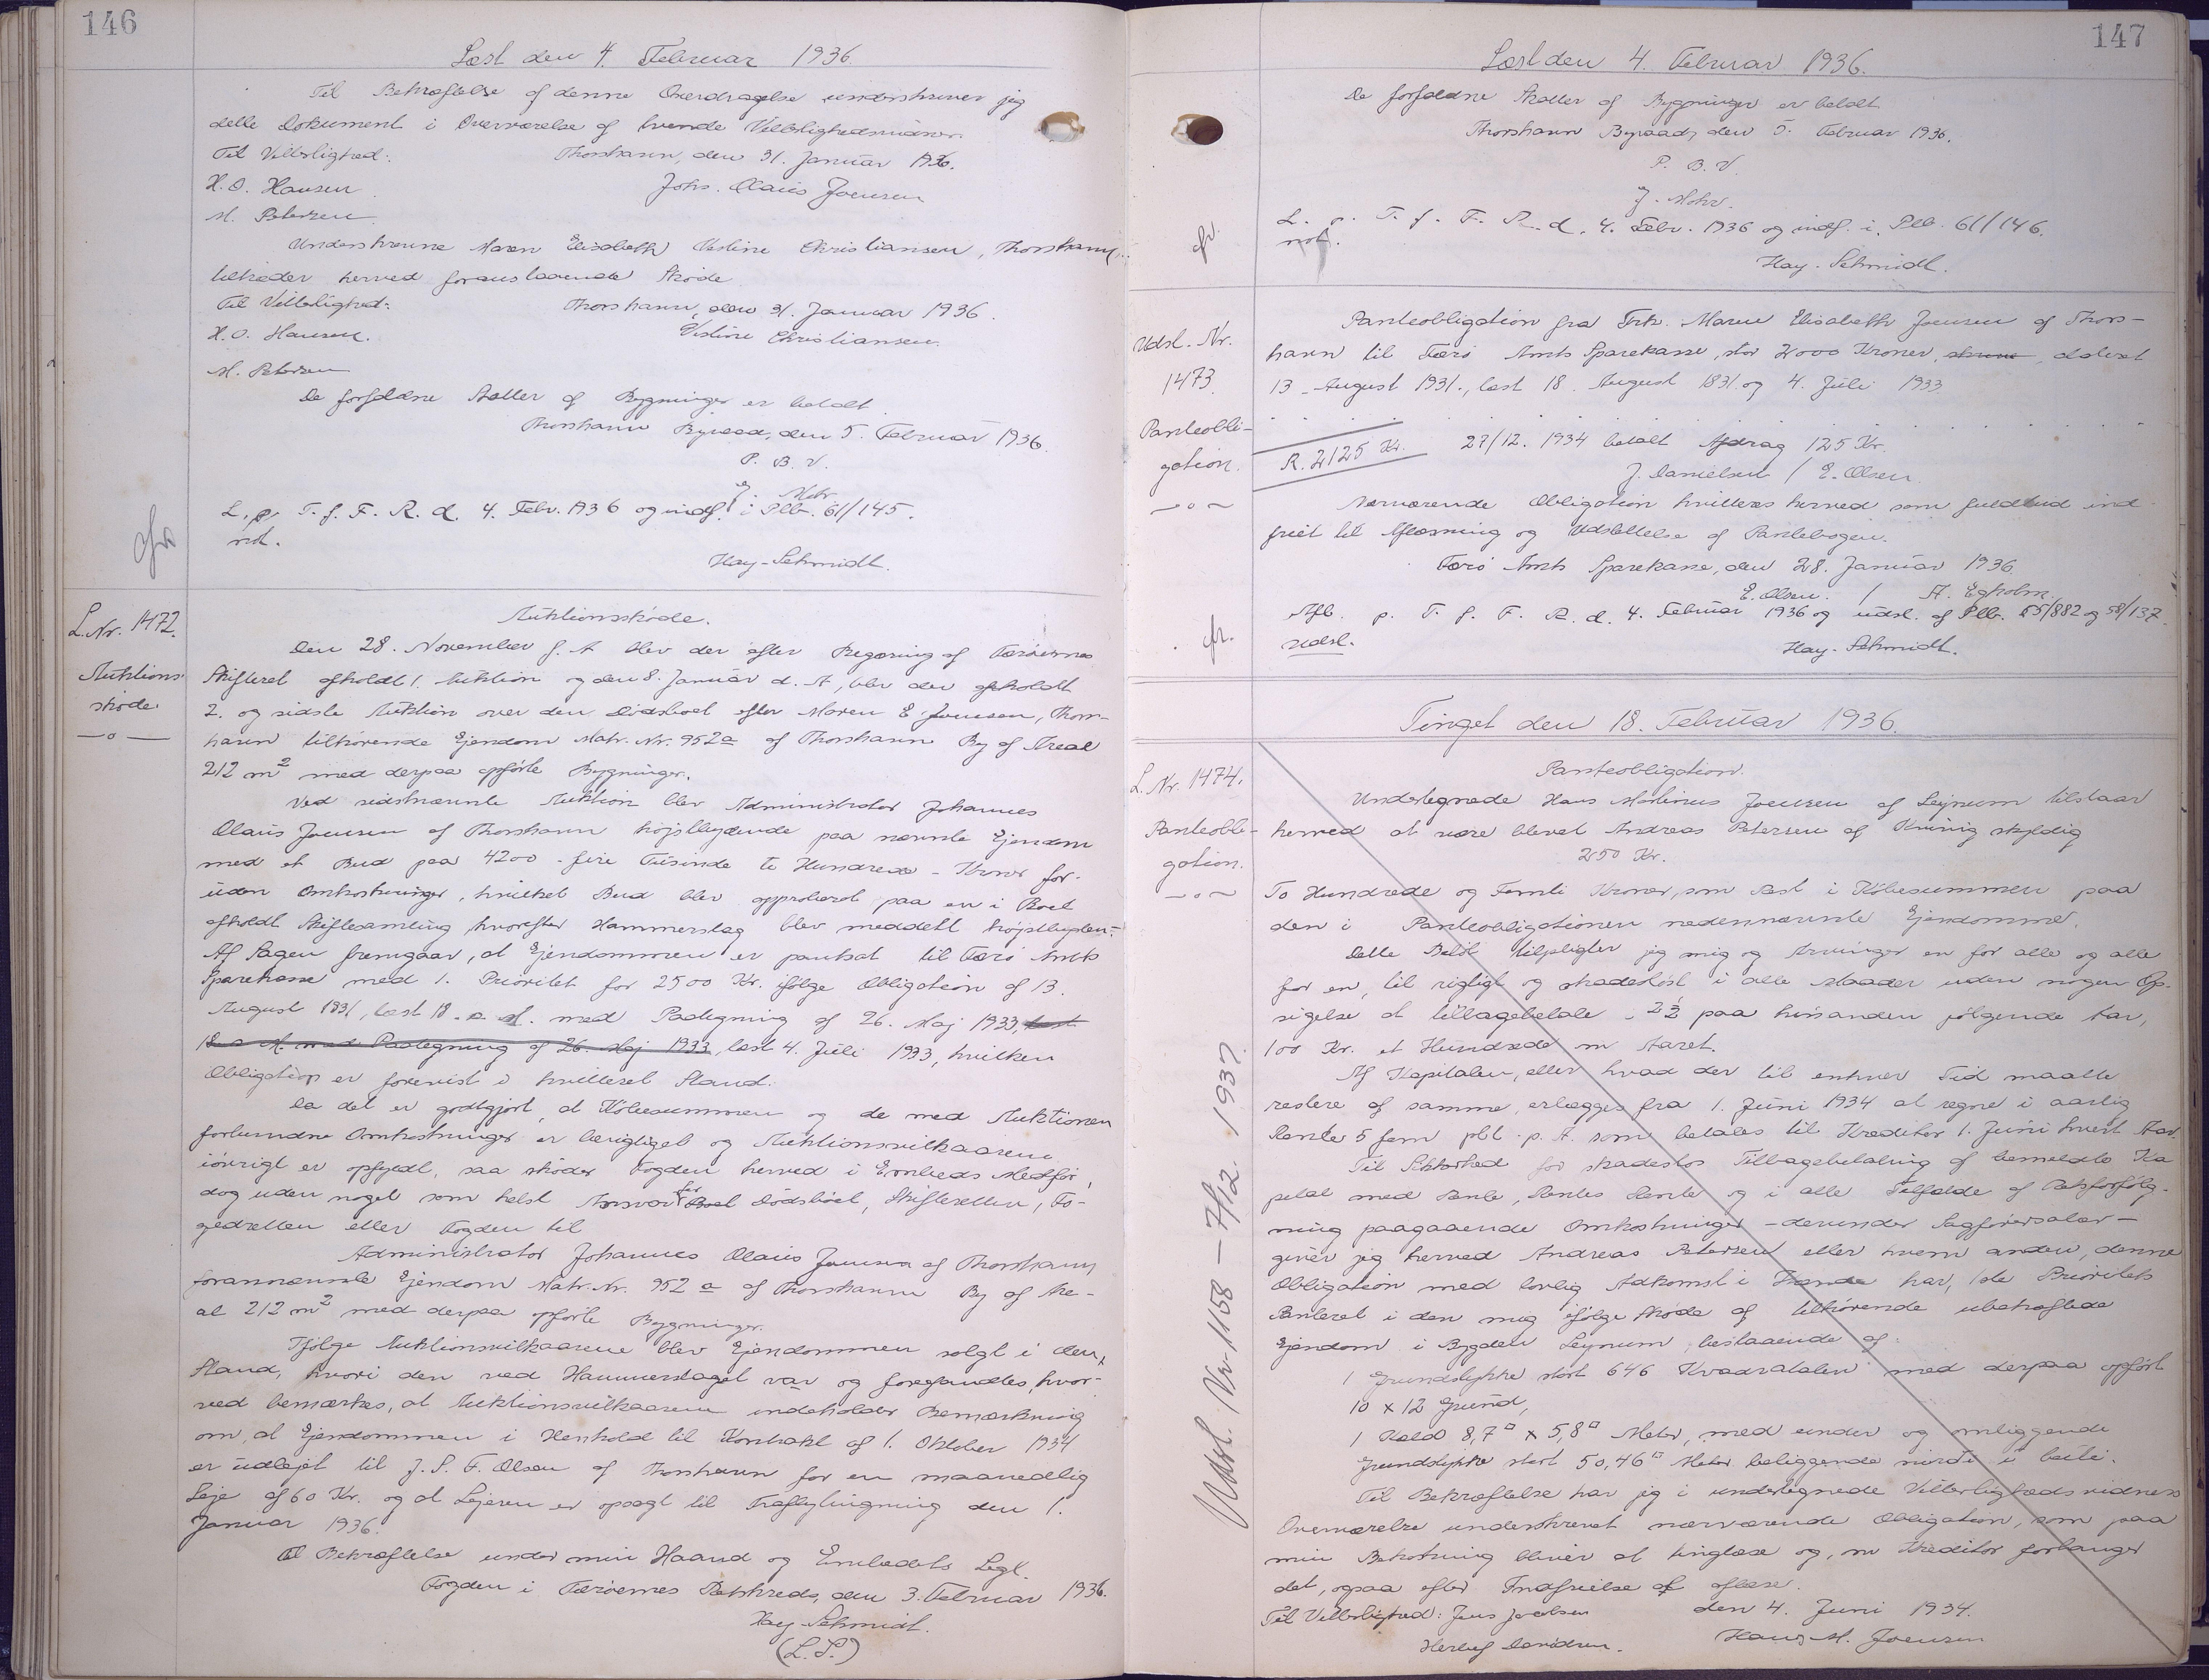 146
Læst den 4. Februar 1936.
Til Bekræftelse af denne Overdragelse underskriver jeg
dette Dokument i Overværelse af tvende Vitterlighedsvidner.
Til Vitterlighed: Thorshavn, den 31. Januar 1936.
H.O. Hansen Johs. Olaius Joensen
M. Petersen
Underskrevne Maren Elisabeth Vestine Christiansen, Thorshavn,
tiltræder herved foranstaaende Skøde.
Til Vitterlighed: Thorshavn, den 31. Januar 1936.
H.O. Hansen. Vestine Christiansen.
M. Petersen
De forfaldne Skatter af Bygninger er betalt.
Thorshavn Byraad, den 5. Februar 1936.
P. B. V.
J. Mohr
L. p. T. f. F. R. d. 4. Febr. 1936 og indf. i Plb. 61/145.
not.
Hay-Schmidt.
L. Nr. 1472.
Auktions
skøde.
Auktionsskøde.
Den 28. November f. A blev der efter Begæring af Færøernes
Skifteret afholdt 1. Auktion og den 8. Januar d. A, blev der afholdt
2. og sidste Auktion over den Dødsboet efter Maren E Joensen, Thors-
havn tilhørende Ejendom Matr. Nr. 952a af Thorshavn By af Areal
212 m2 med derpaa opførte Bygninger.
Ved sidstnævnte Auktion blev Administrator Johannes
Olaius Joensen af Thorshavn højstbydende paa nævnte Ejendom
med et Bud paa 4200 - fire Tusinde to Hundrede - Kroner for-
uden Omkostninger, hvilket Bud blev approberet paa en i Boet
afholdt Skiftesamling, hvorefter Hammerslag blev meddelt højstbyden-
Af Sagen fremgaar, at Ejendommen er pantsat til Færø Amts
Sparekasse med 1. Prioritet for 2500 Kr. ifølge Obligation af 13.
August 1931, læst 18. s. M. med Paategning af 26. Maj 1933, læst
18 s. M. med Paategning af 26. Maj 1933, læst 4. Juli 1933, hvilken
Obligation er forevist i kvitteret Stand.
Da det er godtgjort, at Købesummen og de med Auktionen
forbundne Omkostninger er berigtiget og Auktionsvilkaarene
iøvrigt er opfyldt, saa skøder Fogden herved i Embeds Medfør,
dog uden noget som helst Ansvar for Boet Dødsboet, Skifteretten, Fo-
gedretten eller Fogden til
Administrator Johannes Olaius Joensen af Thorshavn
forannævnte Ejendom Matr. Nr. 952 a af Thorshavn By af Are-
al 212 m2 med derpaa opførte Bygninger.
Ifølge Auktionsvilkaarene blev Ejendommen solgt i den
Stand, hvori den ved Hammerslaget var og forefandtes, hvor-
ved bemærkes, at Auktionsvilkaarene indeholder Bemærkning
om, at Ejendommen i Henhold til Kontrakt af 1. Oktober 1934
er udlejet til J. S. F. Olsen af Thorshavn for en maanedlig
Leje af 60 Kr. og at Lejeren er opsagt til Fraflytningning den 1.
Januar 1936.
Til Bekræftelse under min Haand og Embedets Segl.
Fogden i Færøernes Retskreds, den 3. Februar 1936.
Hay-Schmidt.
(L. S.)
147
Læst den 4. Februar 1936.
De forfaldne Skatter af Bygninger er betalt
Thorshavn Byraad, den 5. Februar 1936.
P. B. V.
J. Mohr.
L. p. T. f. F. R. d. 4. Febr. 1936 og indf. i. Plb. 61/146.
not.
Hay-Schmidt.
Udsl. Nr.
1473
Panteobli-
gation.
Panteobligation fra Frk. Maren Elisabeth Joensen af Thors-
havn til Færø Amts Sparekasse, stor 2000 Kroner, dateret
13. August 1931., læst 18. August 1831. og 4. Juli 1933
R. 2125 Kr. 27/12. 1934 betalt Afdrag 125 Kr.
J. Danielsen / E. Olsen.
Nærværende Obligation kvitteres herved som fuldtud ind-
friet til Aflæsning og Udslettelse af Pantebogen.
Færø Amts Sparekasse, den 28. Januar 1936.
E. Olsen. / A. Egholm.
Afl. p. T. f. F. R. d. 4. Februar 1936 og udsl. af Plb. 55/882 og 58/137.
Udsl.
Hay-Schmidt.
Tinget den 18. Februar 1936.
L. Nr. 1474.
Panteobli-
gation.
Panteobligation.
Undertegnede Hans Martinus Joensen af Leynum tilstaar
herved at være blevet Andreas Petersen af Kvivig skyldig
250 Kr.
To Hundrede og Femti Kroner, som Rest i Købesummen paa
den i Panteobligationen nedennævnte Ejendomme.
Dette Beløb tilpligter jeg mig og Arvinger en for alle og alle
for en, til rigtigt og skadesløst i alle Maader uden nogen Op-
sigelse at tilbagebetale i 2½ paa hinanden følgende Aar,
100 Kr. et Hundrede om Aaret.
Af Kapitalen, eller hvad der til enhver Tid maatte
restere af samme, erlægges fra 1. Juni 1934 at regne i aarlig
Rente 5 fem pct. p. A. som betales til Kreditor 1. Juni hvert Aar.
Til Sikkerhed for skadesløs Tilbagebetaling af bemeldte Ka
pital med Rente, Rentes Rente og i alle Tilfælde af Retsforfølg-
ning paagaaende Omkostninger - derunder Sagførersalær -
giver jeg herved Andreas Petersen eller hvem anden, denne
Obligation med lovlig Adkomst i Hænde har, 1ste Prioritets
Panteret i den mig ifølge Skøde af tilhørende ubehæftede
Ejendom i Bygden Leynum bestaaende af:
1 Grundstykke stort 646 Kvadratalen med derpaa opført
10 x 12 Grund,
1 Hæld 8,7□ x 5,8□ Meter, med under og omliggende
Grundstykke stort 50,46□ Meter beliggende
Til Bekræftelse har jeg i undertegnede Vitterlighedsvidners
Overværelse underskrevet nærværende Obligation, som paa
min Bekostning bliver at tinglæse og, om Kreditor forlanger
det, ogsaa efter Indfrielse af aflæse.
Til Vitterlighed: Jens Jacobsen den 4. Juni 1934.
Herluf Davidsen. Hans M. Joensen
Udsl. Nr. 1158 - 7/12. 1937.